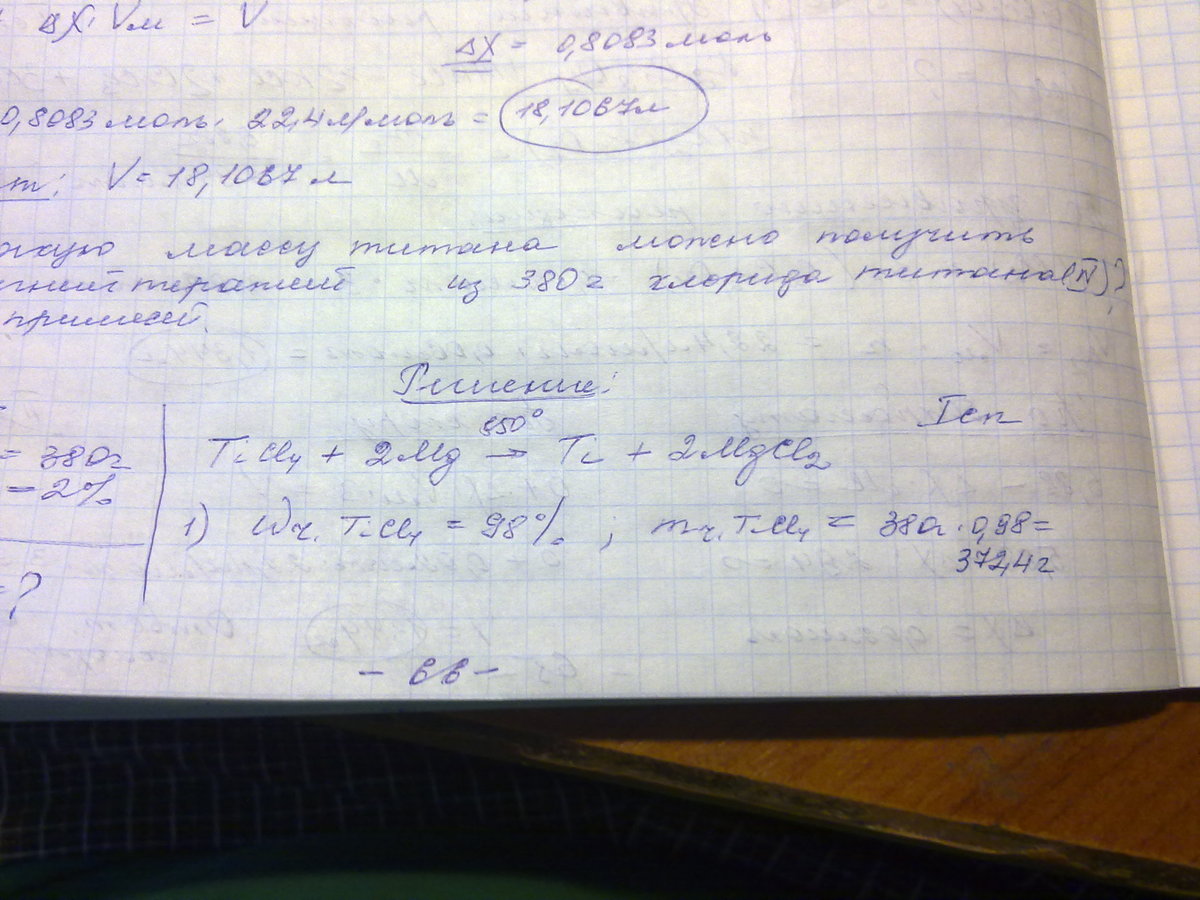 ΔX · Vм = V
ΔX = 0,8083 моль
0,8083 моль · 22,4 л/моль = 18,1067 л
т: V = 18,1067 л
акую массу титана можно получить
гниетермией из 380 г хлорида титана (IV)?
примесей.
Решение:
= 380 г
TiCl₄ + 2Mg 850° → Ti + 2MgCl₂
I сп
– 2%
1) Wч. TiCl₄ = 98% ; mч. TiCl₄ = 380г · 0,98 =
372,4 г
?
– 66 –